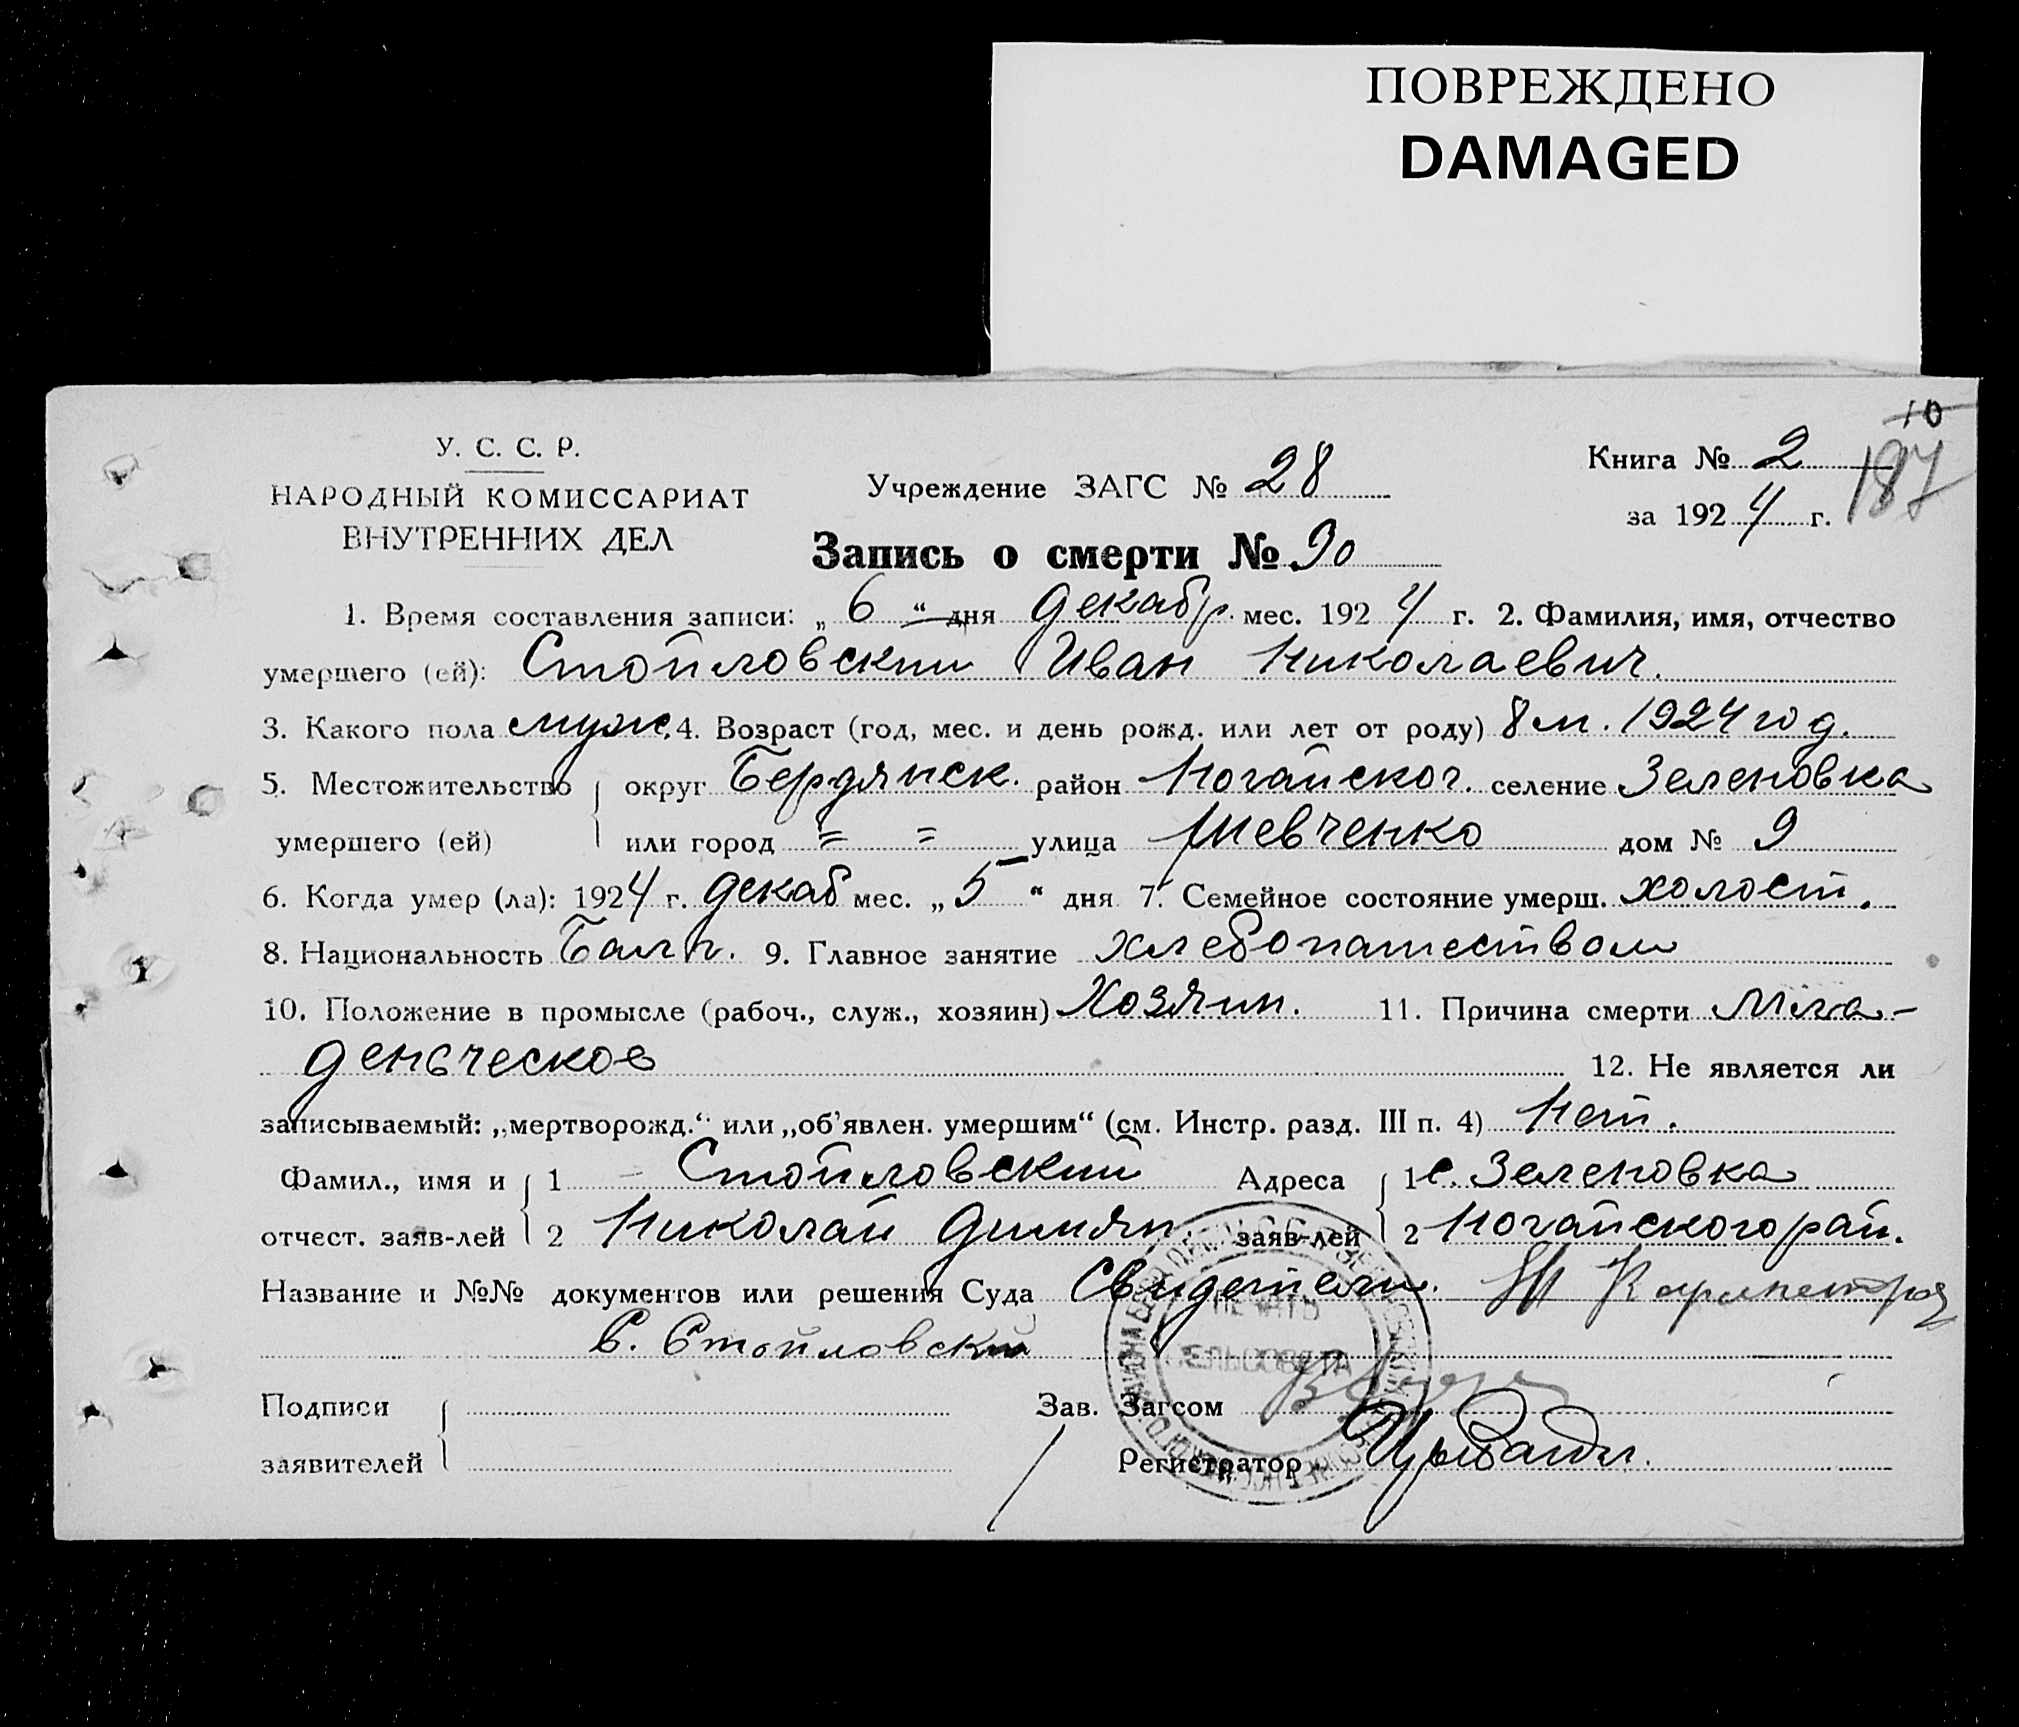 ПОВРЕЖДЕНО
DAMAGED
У. С. С. Р.
НАРОДНЫЙ КОМИССАРИАТ
ВНУТРЕННИХ ДЕЛ
Учреждение ЗАГС № 28
Книга № 2
10
187
за 1924 г.
Запись о смерти № 90
1. Время составления записи: „ 6 “ дня декабр. мес. 1924 г. 2. Фамилия, имя, отчество
умершего (ей): Стойловский Иван Николаевич.
3. Какого пола муж. 4. Возраст (год, мес. и день рожд. или лет от роду) 8 м. 1924 год.
5. Местожительство округ Бердянск. район Ногайског. селение Зеленовка
умершего (ей) или город = = улица Шевченко дом № 9
6. Когда умер (ла): 1924 г. декаб мес. „ 5 “ дня 7. Семейное состояние умерш. холост.
8. Национальность Балг. 9. Главное занятие хлебопашеством
10. Положение в промысле (рабоч., служ., хозяин) Хозяин. 11. Причина смерти Мла-
денческое 12. Не является ли
записываемый: „мертворожд.“ или „об’явлен. умершим“ (см. Инстр. разд. III п. 4) Нет.
Фамил., имя и 1 Стойловский Адреса 1 с. Зеленовка
отчест. заяв-лей 2 Николай Димян. заяв-лей 2 Ногайского рай.
Название и №№ документов или решения Суда Свидетели.
С. Стойловский
ПЕЧАТЬ
СЕЛЬСОВЕТА
Подписи Зав. Загсом
заявителей Регистратор